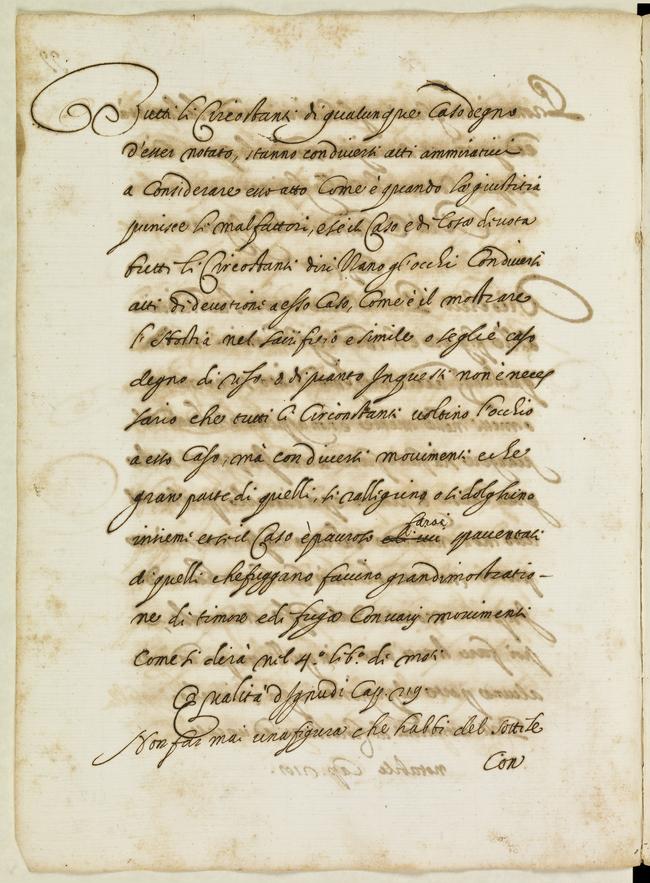 Tutti li Circostanti di qualunque Caso degno
d'esser notato, stanno con diversi atti ammirativi
a Considerare esso atto Come è quando la giustitia
punisce li malfattori, e se il Caso è di Cosa divota
tutti li Circostanti dirizzano gl'occhi Con diversi
atti di devotioni a esso Caso, Come è il mostrare
l'Hostia nel sacrifitio e simile o s'egli è caso
degno di riso o di pianto In questi non è neces
sario che tutti li Circonstanti voltino l'occhio
a esso Caso, mà con diversi movimenti e che
gran parte di quelli, si rallegrino o si dolghino
insiemi et se il Caso è pauroso farai
spaventati
di quelli che fuggano faccino grandi mostratio-
ne di timore e di fuga Con varij movimenti
Come si dirà nel 4.º lib.º di moti
Qualità d'Ignudi Cap. 219.
Non far mai una figura che habbi del sottile
Con